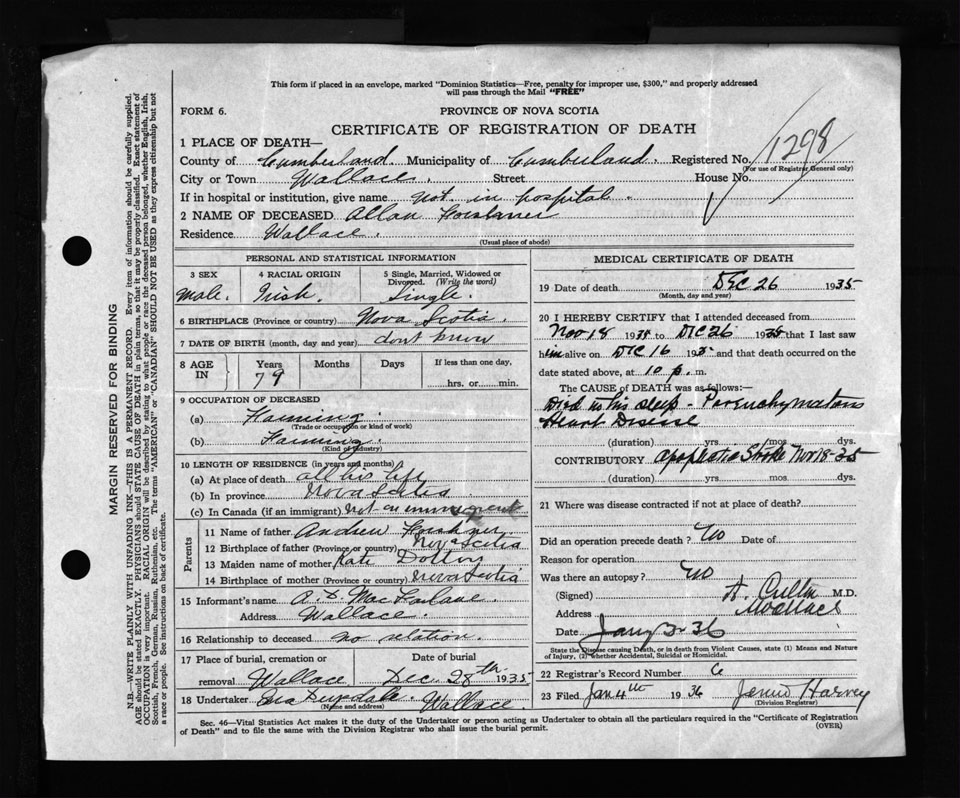 This form if placed in an envelope, marked "Dominion Statistics—Free, penalty for improper use, $300," and properly addressed
will pass through the Mail "FREE"
FORM 6.
PROVINCE OF NOVA SCOTIA
CERTIFICATE OF REGISTRATION OF DEATH
1298
1 PLACE OF DEATH—
County of Cumberland. Municipality of Cumberland. Registered No.
(For use of Registrar General only)
City or Town Wallace. Street House No.
If in hospital or institution, give name not in hospital.
2 NAME OF DECEASED Allan
Residence Wallace.
(Usual place of abode)
PERSONAL AND STATISTICAL INFORMATION
3 SEX 4 RACIAL ORIGIN 5 Single, Married, Widowed or
Divorced. (Write the word)
male. Irish. Single.
6 BIRTHPLACE (Province or country) Nova Scotia.
7 DATE OF BIRTH (month, day and year) dont know
8 AGE IN Years Months Days If less than one day,
79 hrs. or min.
9 OCCUPATION OF DECEASED
(a) Farming.
(Trade or occupation or kind of work)
(b) Farming.
(Kind of industry)
10 LENGTH OF RESIDENCE (in years and months)
(a) At place of death all his life
(b) In province Nova Scotia
(c) In Canada (if an immigrant) not an immigrant
Parents
11 Name of father Andrew
12 Birthplace of father (Province or country) Nova Scotia
13 Maiden name of mother Kate
14 Birthplace of mother (Province or country) Nova Scotia
15 Informant's name A. D. MacFarlane.
Address Wallace.
16 Relationship to deceased no relation.
17 Place of burial, cremation or Date of burial
removal Wallace Dec. 28th 1935
18 Undertaker Wallace.
(Name and address)
MEDICAL CERTIFICATE OF DEATH
19 Date of death DEC 26 1935
(Month, day and year)
20 I HEREBY CERTIFY that I attended deceased from
Nov 18 1935 to DEC 26 1935 that I last saw
him alive on DEC 16 1935 and that death occurred on the
date stated above, at 10 p. m.
The CAUSE of DEATH was as follows:—
Died in his sleep - Parenchymatous
Heart Disease
(duration) yrs mos dys.
CONTRIBUTORY Apoplectic Stroke Nov 18-35
(duration) yrs. mos dys.
21 Where was disease contracted if not at place of death?
Did an operation precede death? No Date of
Reason for operation
Was there an autopsy? No
(Signed) M.D.
Address Wallace
Date Jany 3-36
State the Disease causing Death, or in death from Violent Causes, state (1) Means and Nature
of Injury, (2) whether Accidental, Suicidal or Homicidal.
22 Registrar's Record Number 6
23 Filed Jan 4th 1936 Jennie Harvey
(Division Registrar)
Sec. 46—Vital Statistics Act makes it the duty of the Undertaker or person acting as Undertaker to obtain all the particulars required in the "Certificate of Registration
of Death" and to file the same with the Division Registrar who shall issue the burial permit.
(OVER)
MARGIN RESERVED FOR BINDING
N.B.—WRITE PLAINLY WITH UNFADING INK—THIS IS A PERMANENT RECORD. Every item of information should be carefully supplied.
AGE should be stated EXACTLY. PHYSICIANS should STATE CAUSE OF DEATH in plain terms, so that it may be properly classified. Exact statement of
OCCUPATION is very important. RACIAL ORIGIN will be described by stating to what people or race the deceased person belonged, whether English, Irish,
Scottish, French, German, Russian, Ruthenian, etc. The terms "AMERICAN" or "CANADIAN" SHOULD NOT BE USED as they express citizenship but not
a race or people. See instructions on back of certificate.